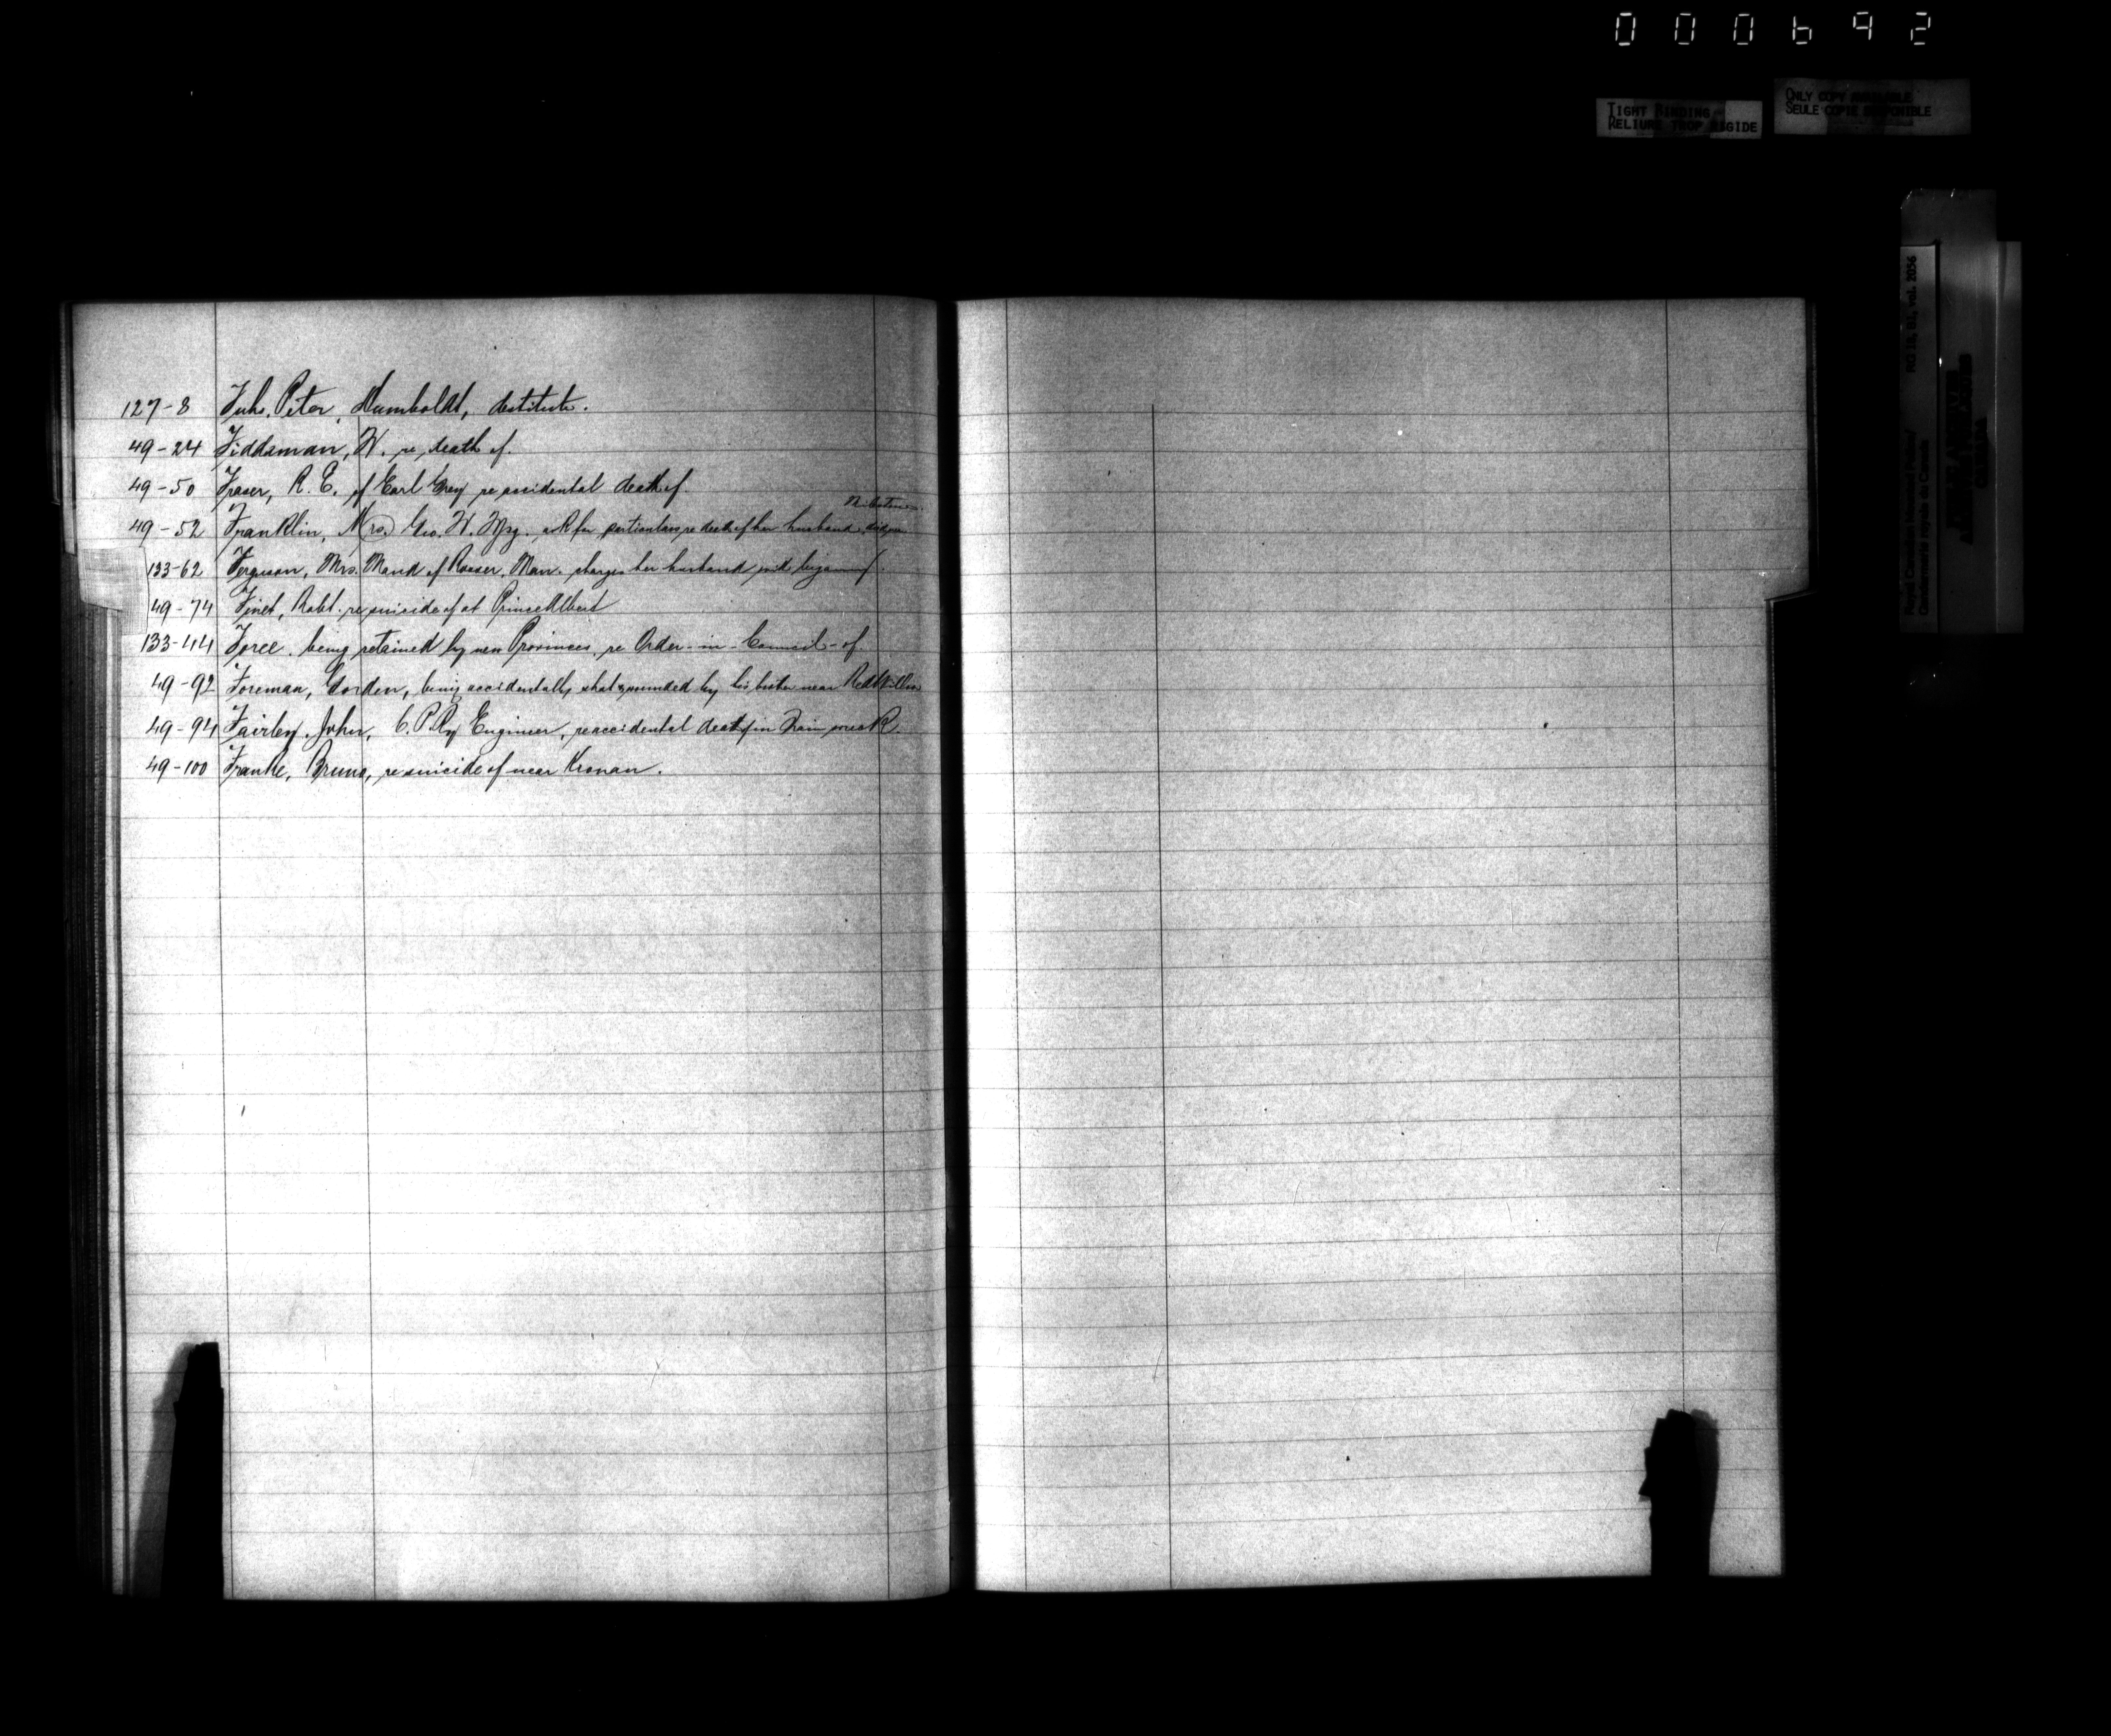 000692
TIGHT BINDING
RELIURE TROP RIGIDE
ONLY COPY AVAILABLE
SEULE COPIE DISPONIBLE
RG 18, B1, vol. 2056
Royal Canadian Mounted Police
Gendarmerie royale du Canada
127-8 Fuhs, Peter, Humboldt, destitute.
49-24 Fiddaman, W. re death of.
49-50 Fraser, R. E. of Earl Grey re accidental death of.
49-52 Franklin, Mrs. Geo. W. Wpg. ask for particulars re death of her husband
133-62 Ferguson, Mrs. Maud of Rosser, Man. charges her husband with bigamy.
49-74 Finet, Robt. re suicide of at Prince Albert
133-44 Force being retained by new Provinces, re Order-in-Council-of.
49-92 Foreman, Gorden, being accidentally shot & wounded by his brother near Red Willow
49-94 Fairley, John, C.P.Ry Engineer, re accidental death of in Train wreck.
49-100 Franke, Bruno, re suicide of near Kronan.